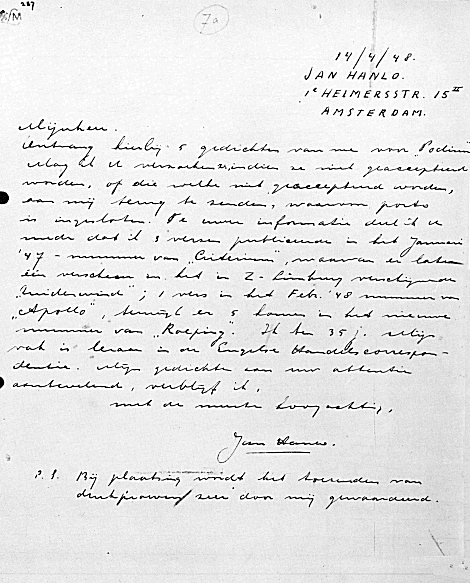 287
7a
14/4/48.
JAN HANLO.
1e HELMERSSTR. 15 II
AMSTERDAM.
Mijnheer.
Ontvang hierbij 5 gedichten van me voor "Podium"
Mag ik U verzoeken ze, indien ze niet geaccepteerd
worden, of die welke niet geaccepteerd worden,
aan mij terug te zenden, waarvoor porto
is ingesloten. Te uwer informatie deel ik U
mede dat ik 3 verzen publiceerde in het Januari
'47 - nummer van "Criterium", waarvan er later
één verscheen in het in Z-Limburg verschijnende
"Zuiderwind"; 1 vers in het Febr. '48 nummer van
"Apollo", terwijl er 5 komen in het nieuwe
nummer van "Roeping". Ik ben 35 j. Mijn
vak is leraar in de Engelse Handelscorrespon-
dentie. Mijn gedichten aan uw attentie
aanbevelend, verblijf ik,
met de meeste hoogachting,
Jan Hanlo.
P.S. Bij plaatsing wordt het toezenden van
drukproeven zeer door mij gewaardeerd.